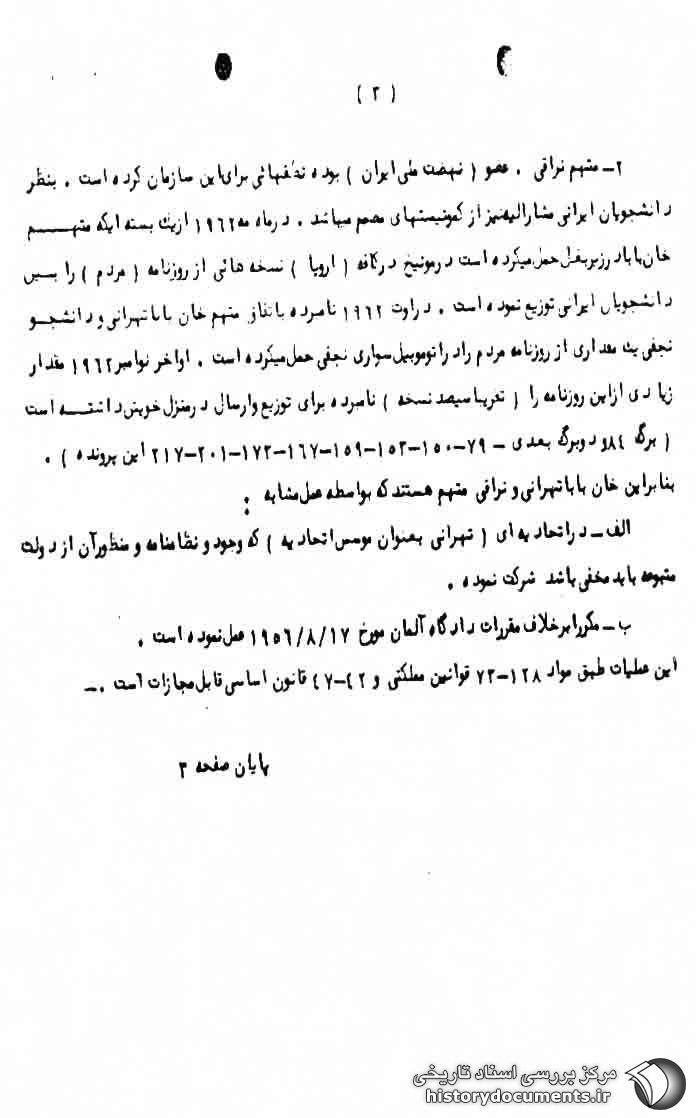 ( ۳ )
۲- متهم نراقی . عضو ( نهضت ملی ایران ) بوده نطقهائی برای این سازمان کرده است . بنظر
دانشجویان ایرانی مشارالیه نیز از کمونیستهای مصمم میباشد . در ماه مه ۱۹۶۲ از یک بسته ایکه متهم
خان بابا در زیر بغل حمل میکرده است در مونیخ در کافه ( اروپا ) نسخه هائی از روزنامه ( مردم ) را بین
دانشجویان ایرانی توزیع نموده است . در اوت ۱۹۶۲ نامبرده باتفاق متهم خان بابا تهرانی و دانشجو
نجفی یک مقداری از روزنامه مردم را در اتوموبیل سواری نجفی حمل میکرده است . اواخر نوامبر ۱۹۶۲ مقدار
زیادی از این روزنامه را ( تقریبا سیصد نسخه ) نامبرده برای توزیع و ارسال در منزل خویش داشته است
( برگ ۸۴ و دو برگ بعدی - ۷۹-۱۵۰-۱۵۳-۱۵۹-۱۶۷-۱۷۳-۲۰۱-۲۱۷ این پرونده ) .
بنابراین خان بابا تهرانی و نراقی متهم هستند که بواسطه عمل مشابه :
الف - در اتحادیه ای ( تهرانی بعنوان موسس اتحادیه ) که وجود و نظامنامه و منظور آن از دولت
متبوعه باید مخفی باشد شرکت نموده .
ب - مکررا برخلاف مقررات دادگاه آلمان مورخ ۱۹۵۶/۸/۱۷ عمل نموده است .
این عملیات طبق مواد ۱۲۸-۷۳ قوانین مملکتی و ۴۲-۴۷ قانون اساسی قابل مجازات است .-
پایان صفحه ۳
مرکز بررسی اسناد تاریخی
historydocuments.ir